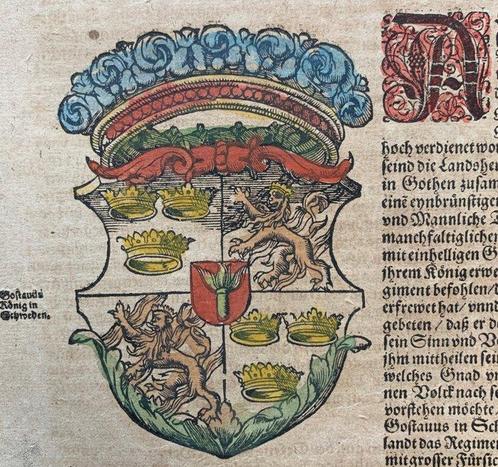 Gostauus
König in
Schweden.
A
hoch verdienet wor
seind die Landshe
in Gothen zusan
eine eynbrünstige
vnd Mannliche
manchfaltigliche
mit einhelligen G
ihrem König erwe
giment befohlen/
erfrewet hat/ vnn
gebeten/ daß er d
sein Sinn vnd V
ihm mittheilen sei
welches Gnad v
nen Volck nach se
vorstehen möchte
Gostauus in Sch
landt das Regimen
mit grosser Fürsic